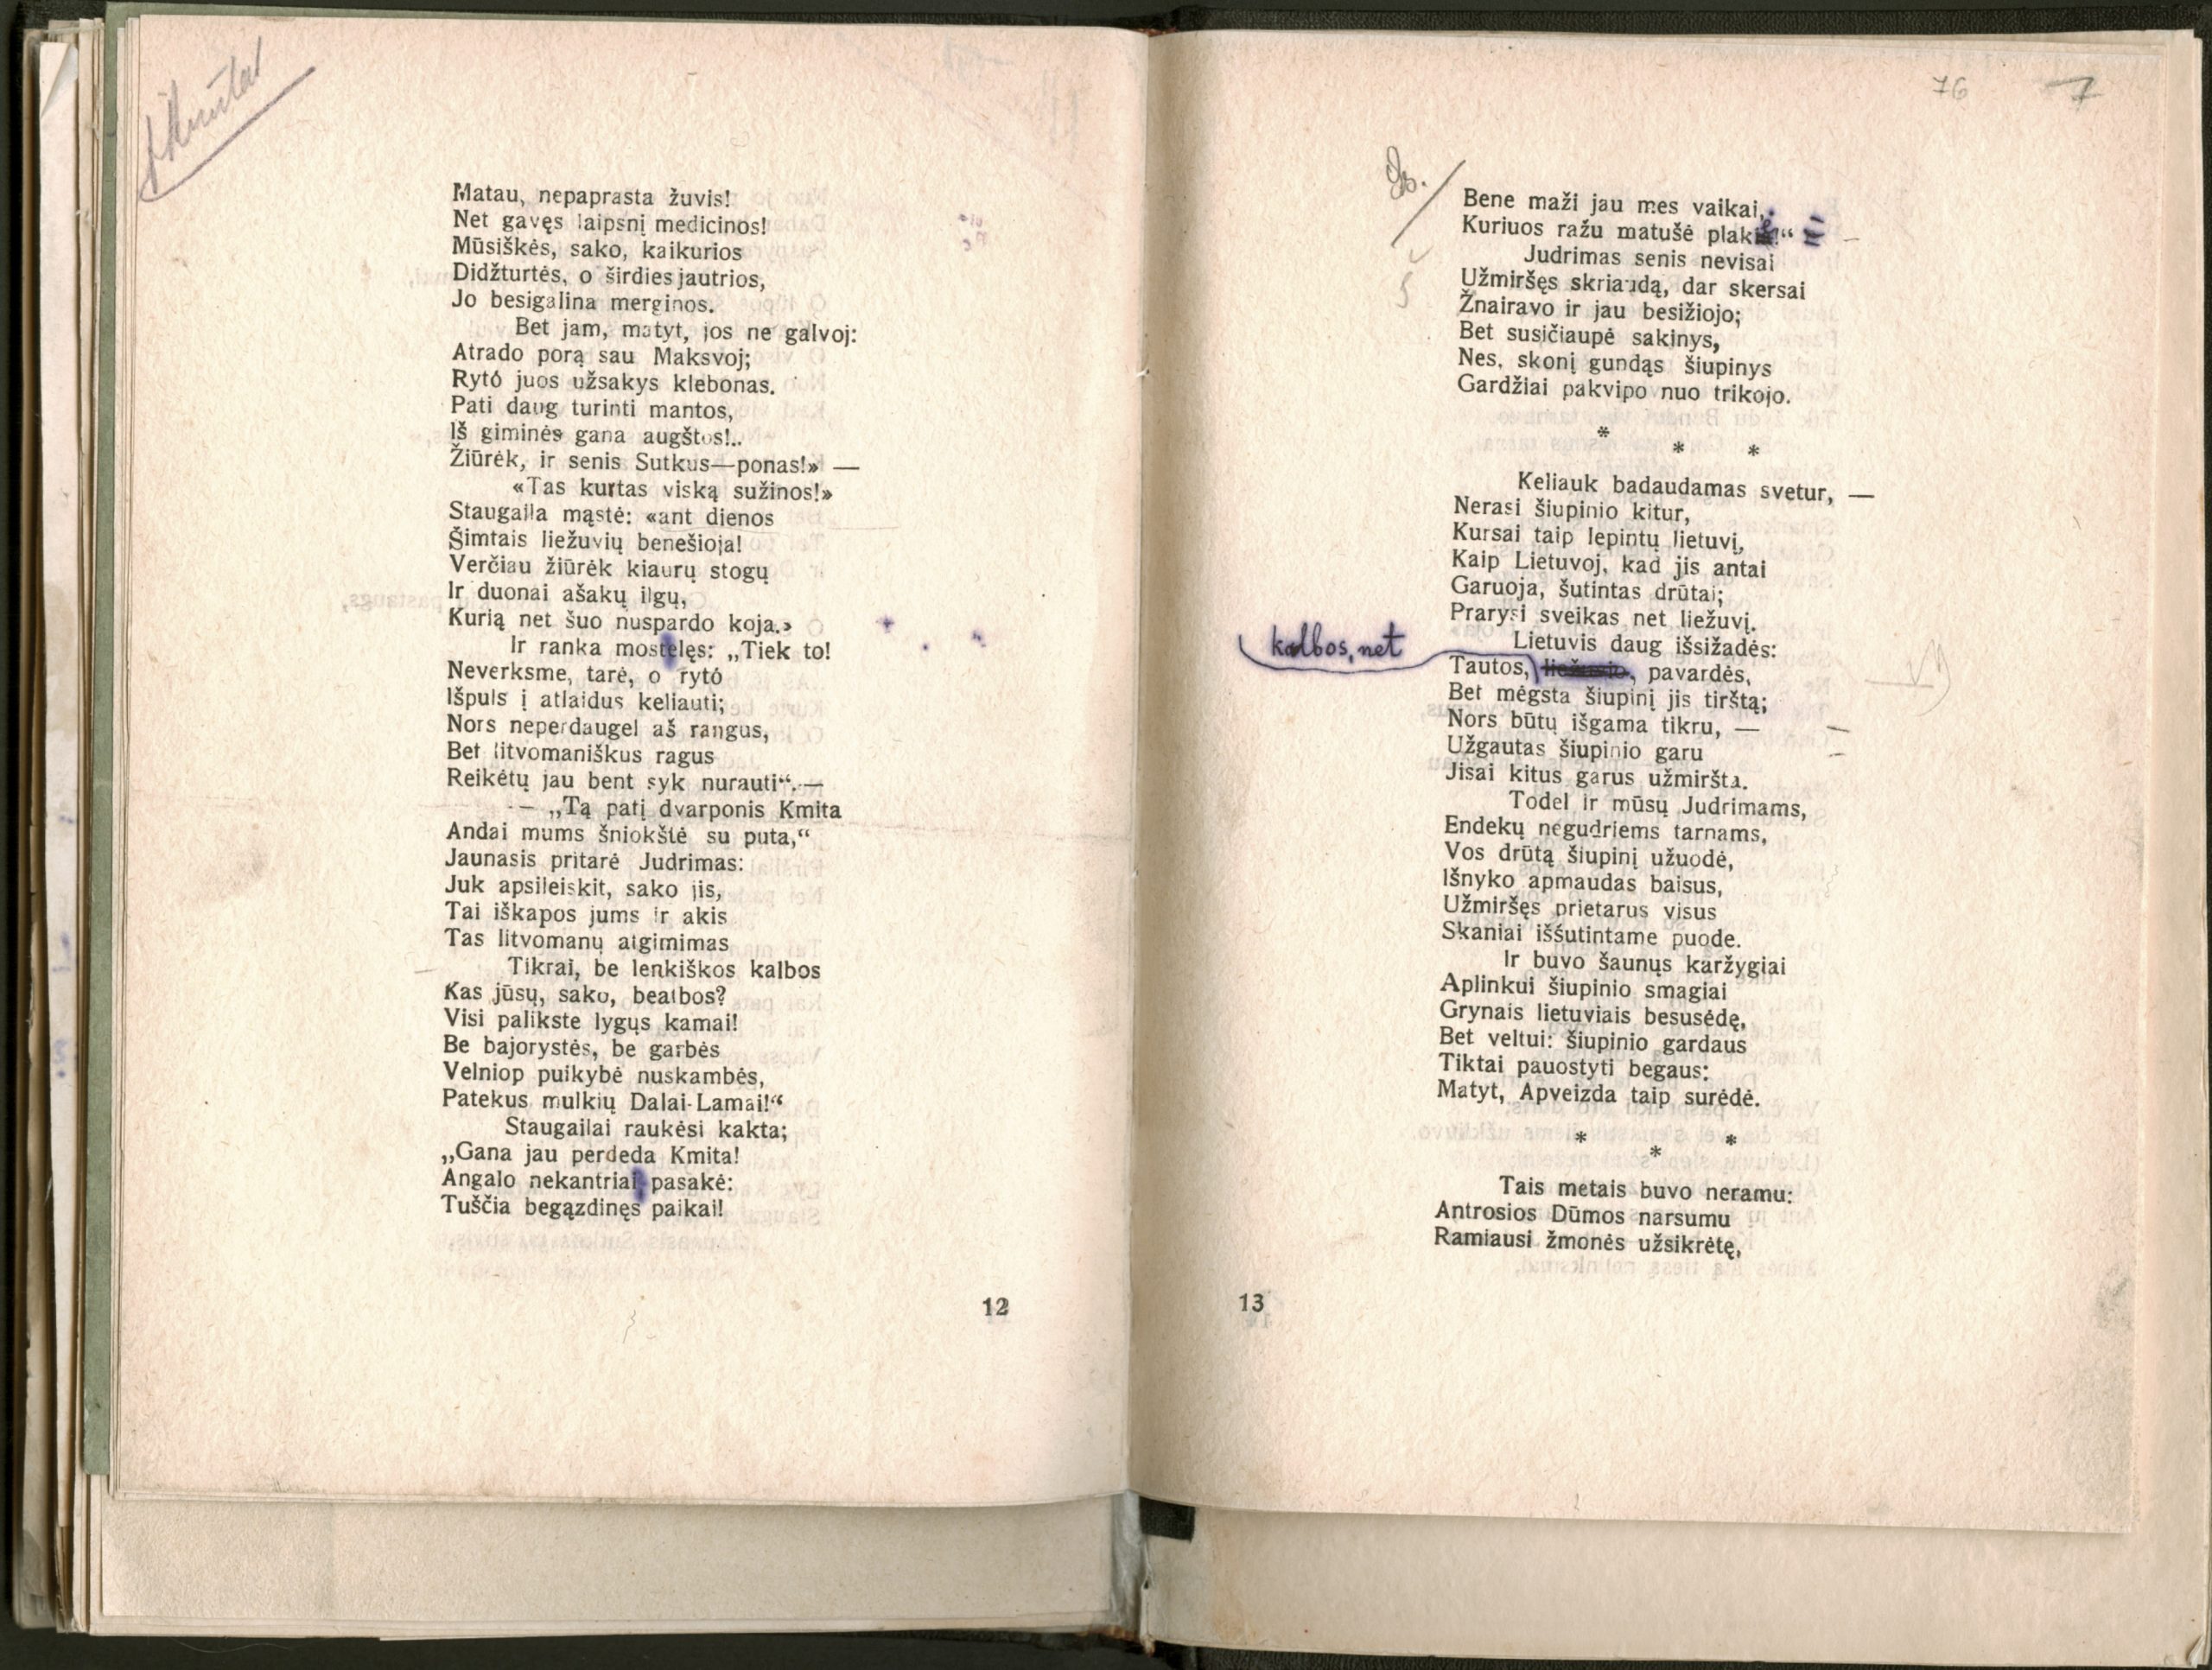 Matau, nepaprasta žuvis!
Net gavęs laipsnį medicinos!
Mūsiškės, sako, kaikurios
Didžturtės, o širdies jautrios,
Jo besigalina merginos.
Bet jam, matyt, jos ne galvoj:
Atrado porą sau Maksvoj;
Rytó juos užsakys klebonas.
Pati daug turinti mantos,
Iš giminės gana augštos!..
Žiūrėk, ir senis Sutkus—ponas!» —
«Tas kurtas viską sužinos!»
Staugaila mąstė: «ant dienos
Šimtais liežuvių benešioja!
Verčiau žiūrėk kiaurų stogų
Ir duonai ašakų ilgų,
Kurią net šuo nuspardo koja.»
Ir ranka mostelęs: „Tiek to!
Neverksme, tarė, o rytó
Išpuls į atlaidus keliauti;
Nors neperdaugel aš rangus,
Bet litvomaniškus ragus
Reikėtų jau bent syk nurauti“.—
— „Tą patį dvarponis Kmita
Andai mums šniokštė su puta,“
Jaunasis pritarė Judrimas:
Juk apsileiskit, sako jis,
Tai iškapos jums ir akis
Tas litvomanų atgimimas
Tikrai, be lenkiškos kalbos
Kas jūsų, sako, beatbos?
Visi palikste lygųs kamai!
Be bajorystės, be garbės
Velniop puikybė nuskambės,
Patekus mulkių Dalai-Lamai!“
Staugailai raukėsi kakta;
„Gana jau perdeda Kmita!
Angalo nekantriai pasakė:
Tuščia begązdinęs paikai!
12
76
7
Bene maži jau mes vaikai,
Kuriuos ražu matušė plakė!“
Judrimas senis nevisai
Užmiršęs skriaudą, dar skersai
Žnairavo ir jau besižiojo;
Bet susičiaupė sakinys,
Nes, skonį gundąs šiupinys
Gardžiai pakvipo nuo trikojo.
* * *
Keliauk badaudamas svetur, —
Nerasi šiupinio kitur,
Kursai taip lepintų lietuvį,
Kaip Lietuvoj, kad jis antai
Garuoja, šutintas drūtai;
Prarysi sveikas net liežuvį.
Lietuvis daug išsižadės:
kalbos, net
Tautos, liežuvio, pavardės,
Bet mėgsta šiupinį jis tirštą;
Nors būtų išgama tikru, —
Užgautas šiupinio garu
Jisai kitus garus užmiršta.
Todel ir mūsų Judrimams,
Endekų negudriems tarnams,
Vos drūtą šiupinį užuodė,
Išnyko apmaudas baisus,
Užmiršęs prietarus visus
Skaniai iššutintame puode.
Ir buvo šaunųs karžygiai
Aplinkui šiupinio smagiai
Grynais lietuviais besusėdę,
Bet veltui: šiupinio gardaus
Tiktai pauostyti begaus:
Matyt, Apveizda taip surėdė.
* * *
Tais metais buvo neramu:
Antrosios Dūmos narsumu
Ramiausi žmonės užsikrėtę,
13